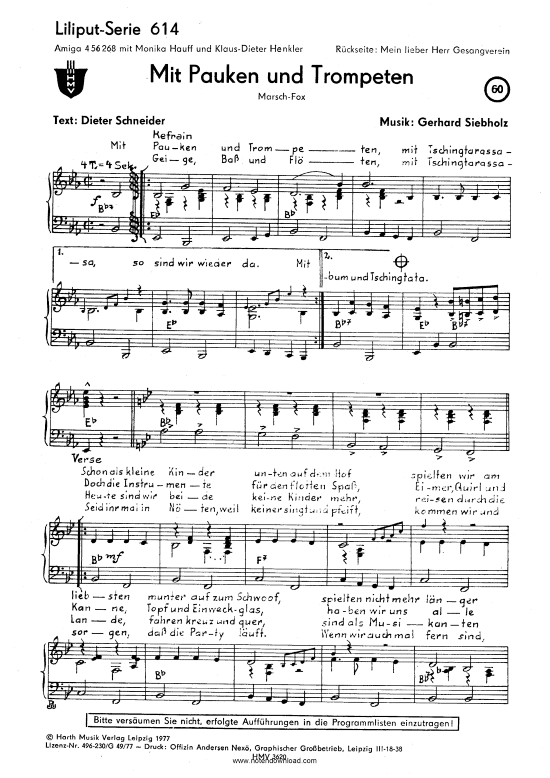 Liliput-Serie 614
Amiga 456268 mit Monika Hauff und Klaus-Dieter Henkler
Rückseite: Mein lieber Herr Gesangverein
HMV
Mit Pauken und Trompeten
60
Marsch-Fox
Text: Dieter Schneider
Musik: Gerhard Siebholz
Refrain
Mit Pau-ken und Trom-pe-ten, mit Tschingtarassa-
Gei-ge, Baß und Flö-ten, mit Tschingtarassa-
4 T. = 4 Sek.
f
Bb7 Eb Bb
1. 2.
-sa, so sind wir wieder da. Mit
-bum und Tschingtata.
Eb Bb7 Eb Bb7
Eb Bb
Verse
Schon als kleine Kin-der un-ten auf dem Hof spielten wir am
Doch die Instru-men-te für den flotten Spaß, Ei-mer, Quirl und
Heu-te sind wir bei-de kei-ne Kinder mehr, rei-sen durch die
Seid ihr mal in Nö-ten, weil keiner singt und pfeift, kommen wir und
Bb mf F7
lieb-sten munter auf zum Schwoof, spielten nicht mehr län-ger
Kan-ne, Topf und Einweck-glas, ha-ben wir uns al-le
Lan-de, fahren kreuz und quer, sind als Mu-si-kan-ten
sor-gen, daß die Par-ty läuft. Wenn wir auch mal fern sind,
Bb
Bitte versäumen Sie nicht, erfolgte Aufführungen in die Programmlisten einzutragen!
© Harth Musik Verlag Leipzig 1977
Lizenz-Nr. 496-230/G 49/77 – Druck: Offizin Andersen Nexö, Graphischer Großbetrieb, Leipzig III-18-38
HMV 3620
www.notendownload.com